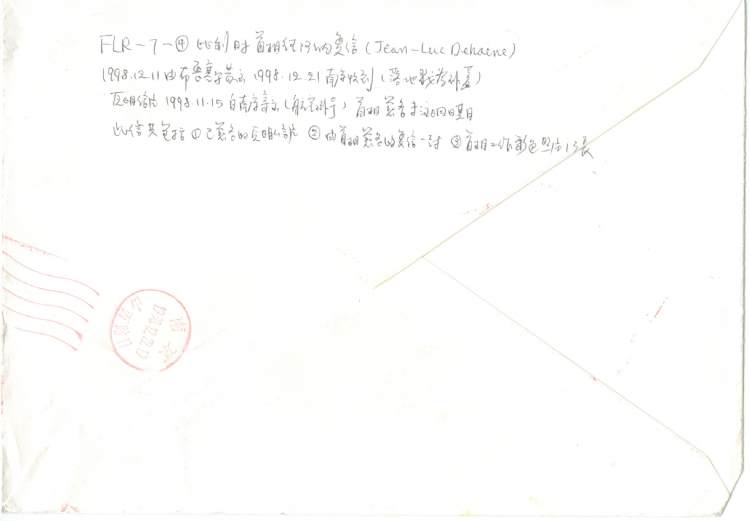 FLR-7-④ 比利时首相径寄的复信(Jean-Luc Dehaene)
1998.12.11由布鲁塞尔寄出 1998.12.21南京收到(落地戳为补盖)
1998.11.15自南京寄出(航空挂号)首相签名未注明日期
此信共包括①已签名的 ②由首相签名的复信一封 ③首相工作彩色照片1张
南京